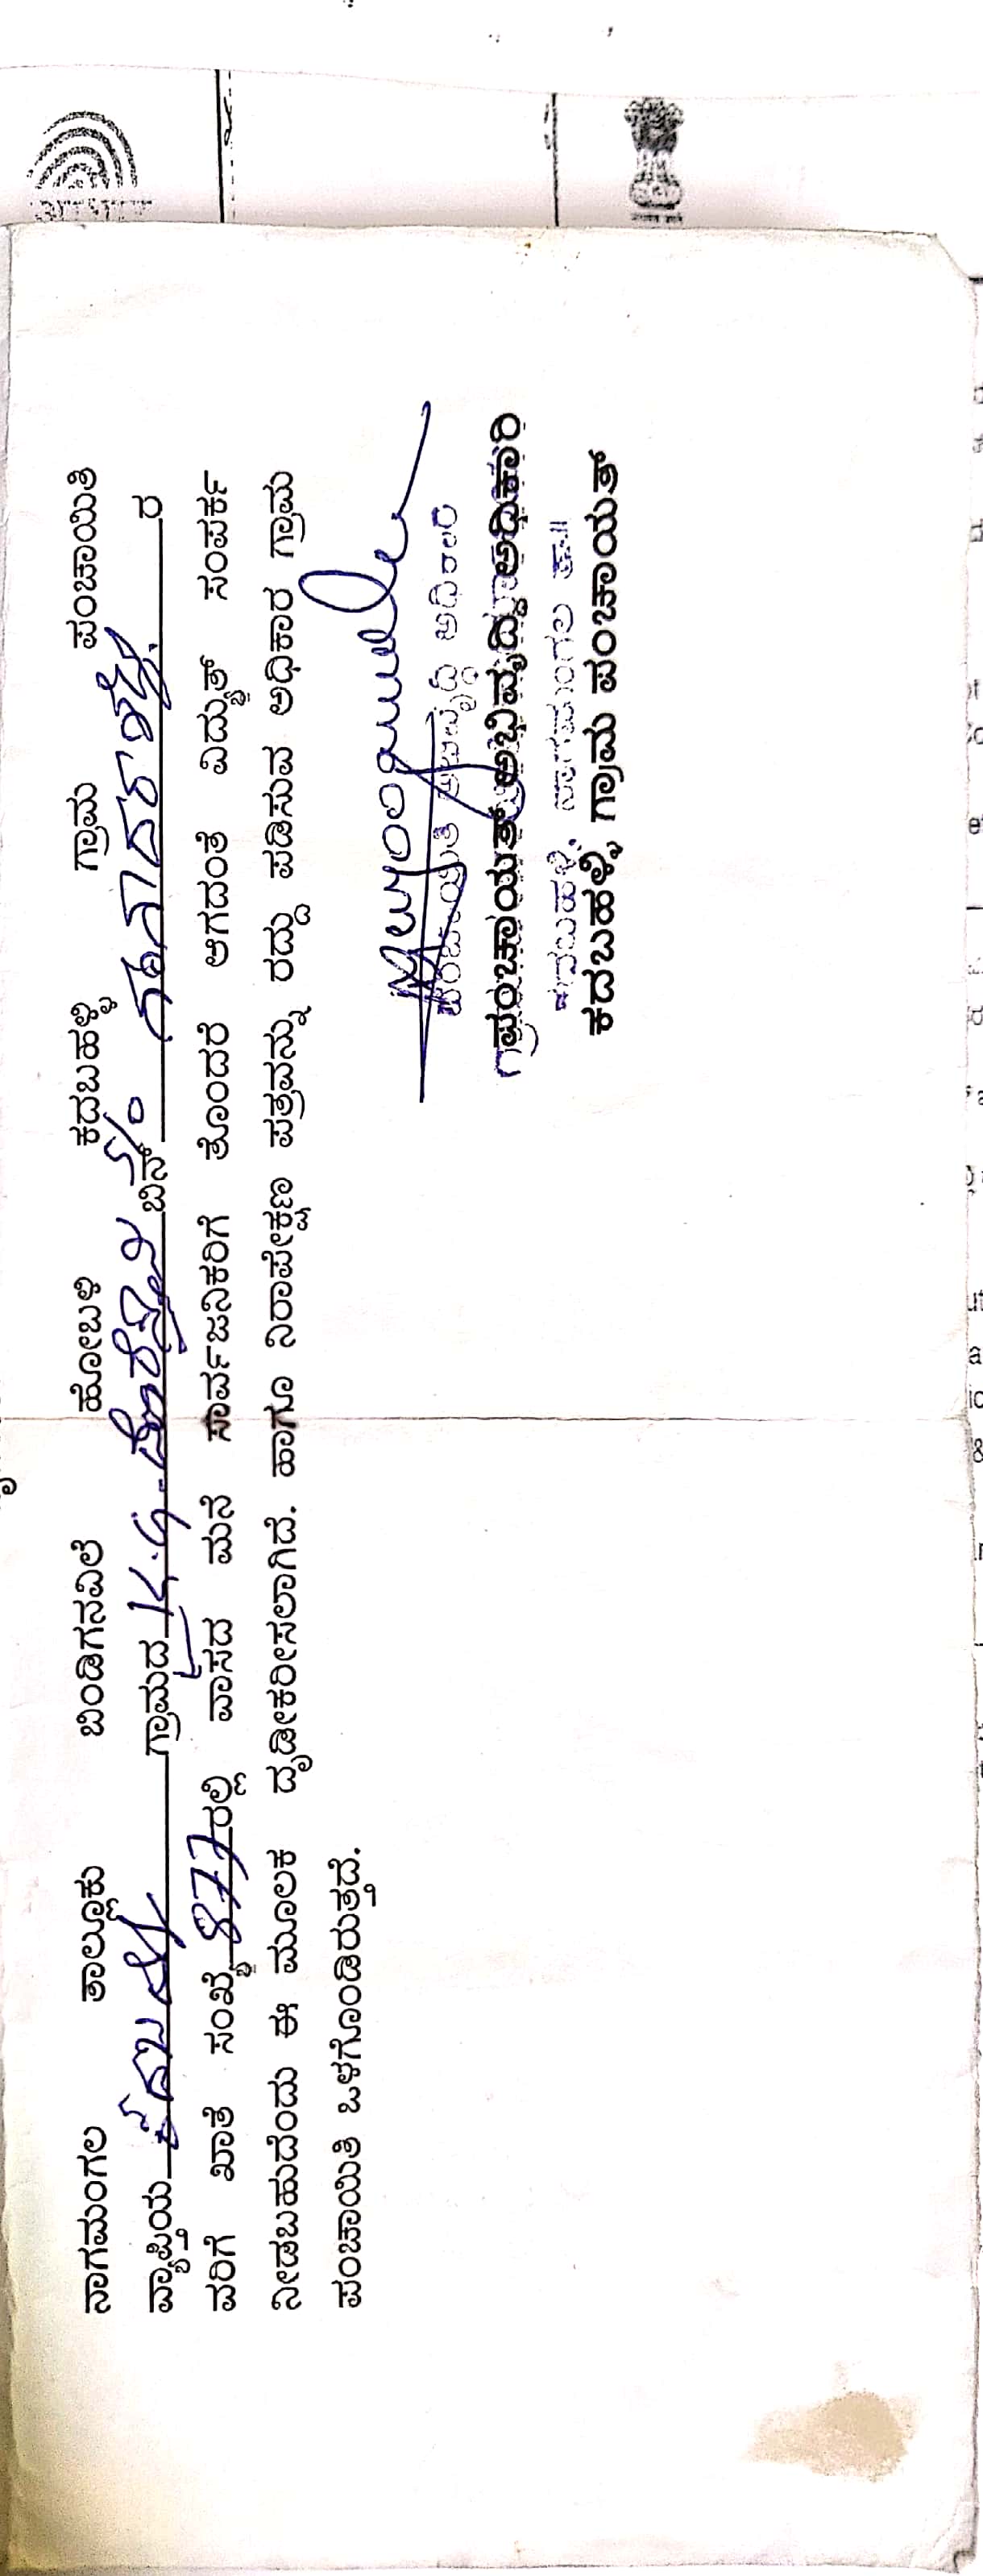 ನಾಗಮಂಗಲ ತಾಲ್ಲೂಕು ಬಿಂಡಿಗನವಿಲೆ ಹೋಬಳಿ ಕದಬಹಳ್ಳಿ ಗ್ರಾಮ ಪಂಚಾಯಿತಿ
ವ್ಯಾಪ್ತಿಯ ಕದಬಹಳ್ಳಿ ಗ್ರಾಮದ K.G. ಬಿನ್ ರ
ವರಿಗೆ ಖಾತೆ ಸಂಖ್ಯೆ 877 ರಲ್ಲಿ ವಾಸದ ಮನೆ ಸಾರ್ವಜನಿಕರಿಗೆ ತೊಂದರೆ ಆಗದಂತೆ ವಿದ್ಯುತ್ ಸಂಪರ್ಕ
ನೀಡಬಹುದೆಂದು ಈ ಮೂಲಕ ದೃಡೀಕರೀಸಲಾಗಿದೆ. ಹಾಗೂ ನಿರಾಪೇಕ್ಷಣ ಪತ್ರವನ್ನು ರದ್ದು ಪಡಿಸುವ ಅಧಿಕಾರ ಗ್ರಾಮ
ಪಂಚಾಯಿತಿ ಒಳಗೊಂಡಿರುತ್ತದೆ.
ಪಂಚಾಯಿತಿ ಅಭಿವೃದ್ಧಿ ಅಧಿಕಾರಿ
ಪಂಚಾಯತ್ ಅಭಿವೃದ್ಧಿ ಅಧಿಕಾರಿ
ಕದಬಹಳ್ಳಿ, ನಾಗಮಂಗಲ ತಾ॥
ಕದಬಹಳ್ಳಿ ಗ್ರಾಮ ಪಂಚಾಯತ್